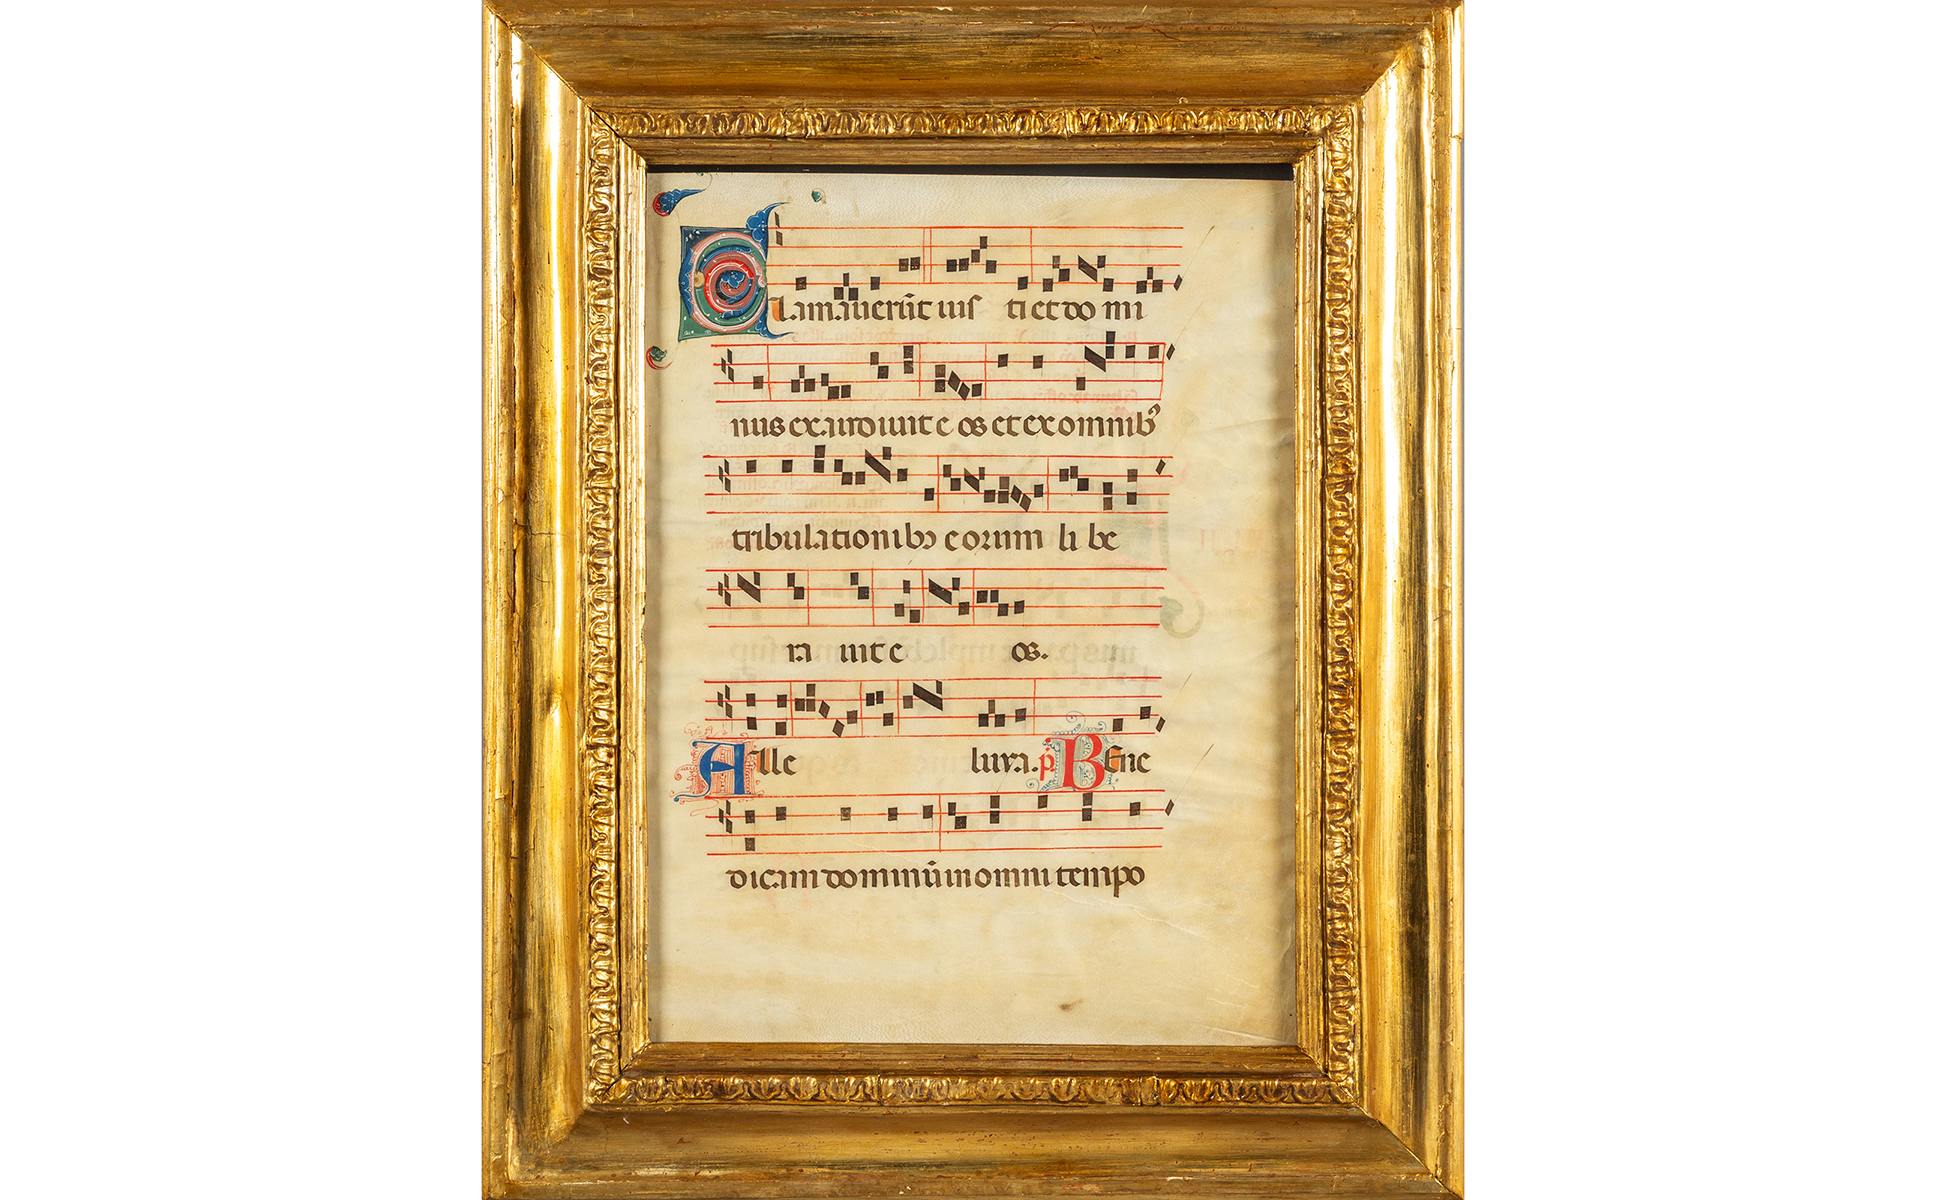 Clamauerūt iusti et domi
nus exaudiuit eos et ex omnibꝰ
tribulationibꝰ eorum libe
rauit eos.
Alleluya. p̄ Bene
dicam dominū in omni tempo